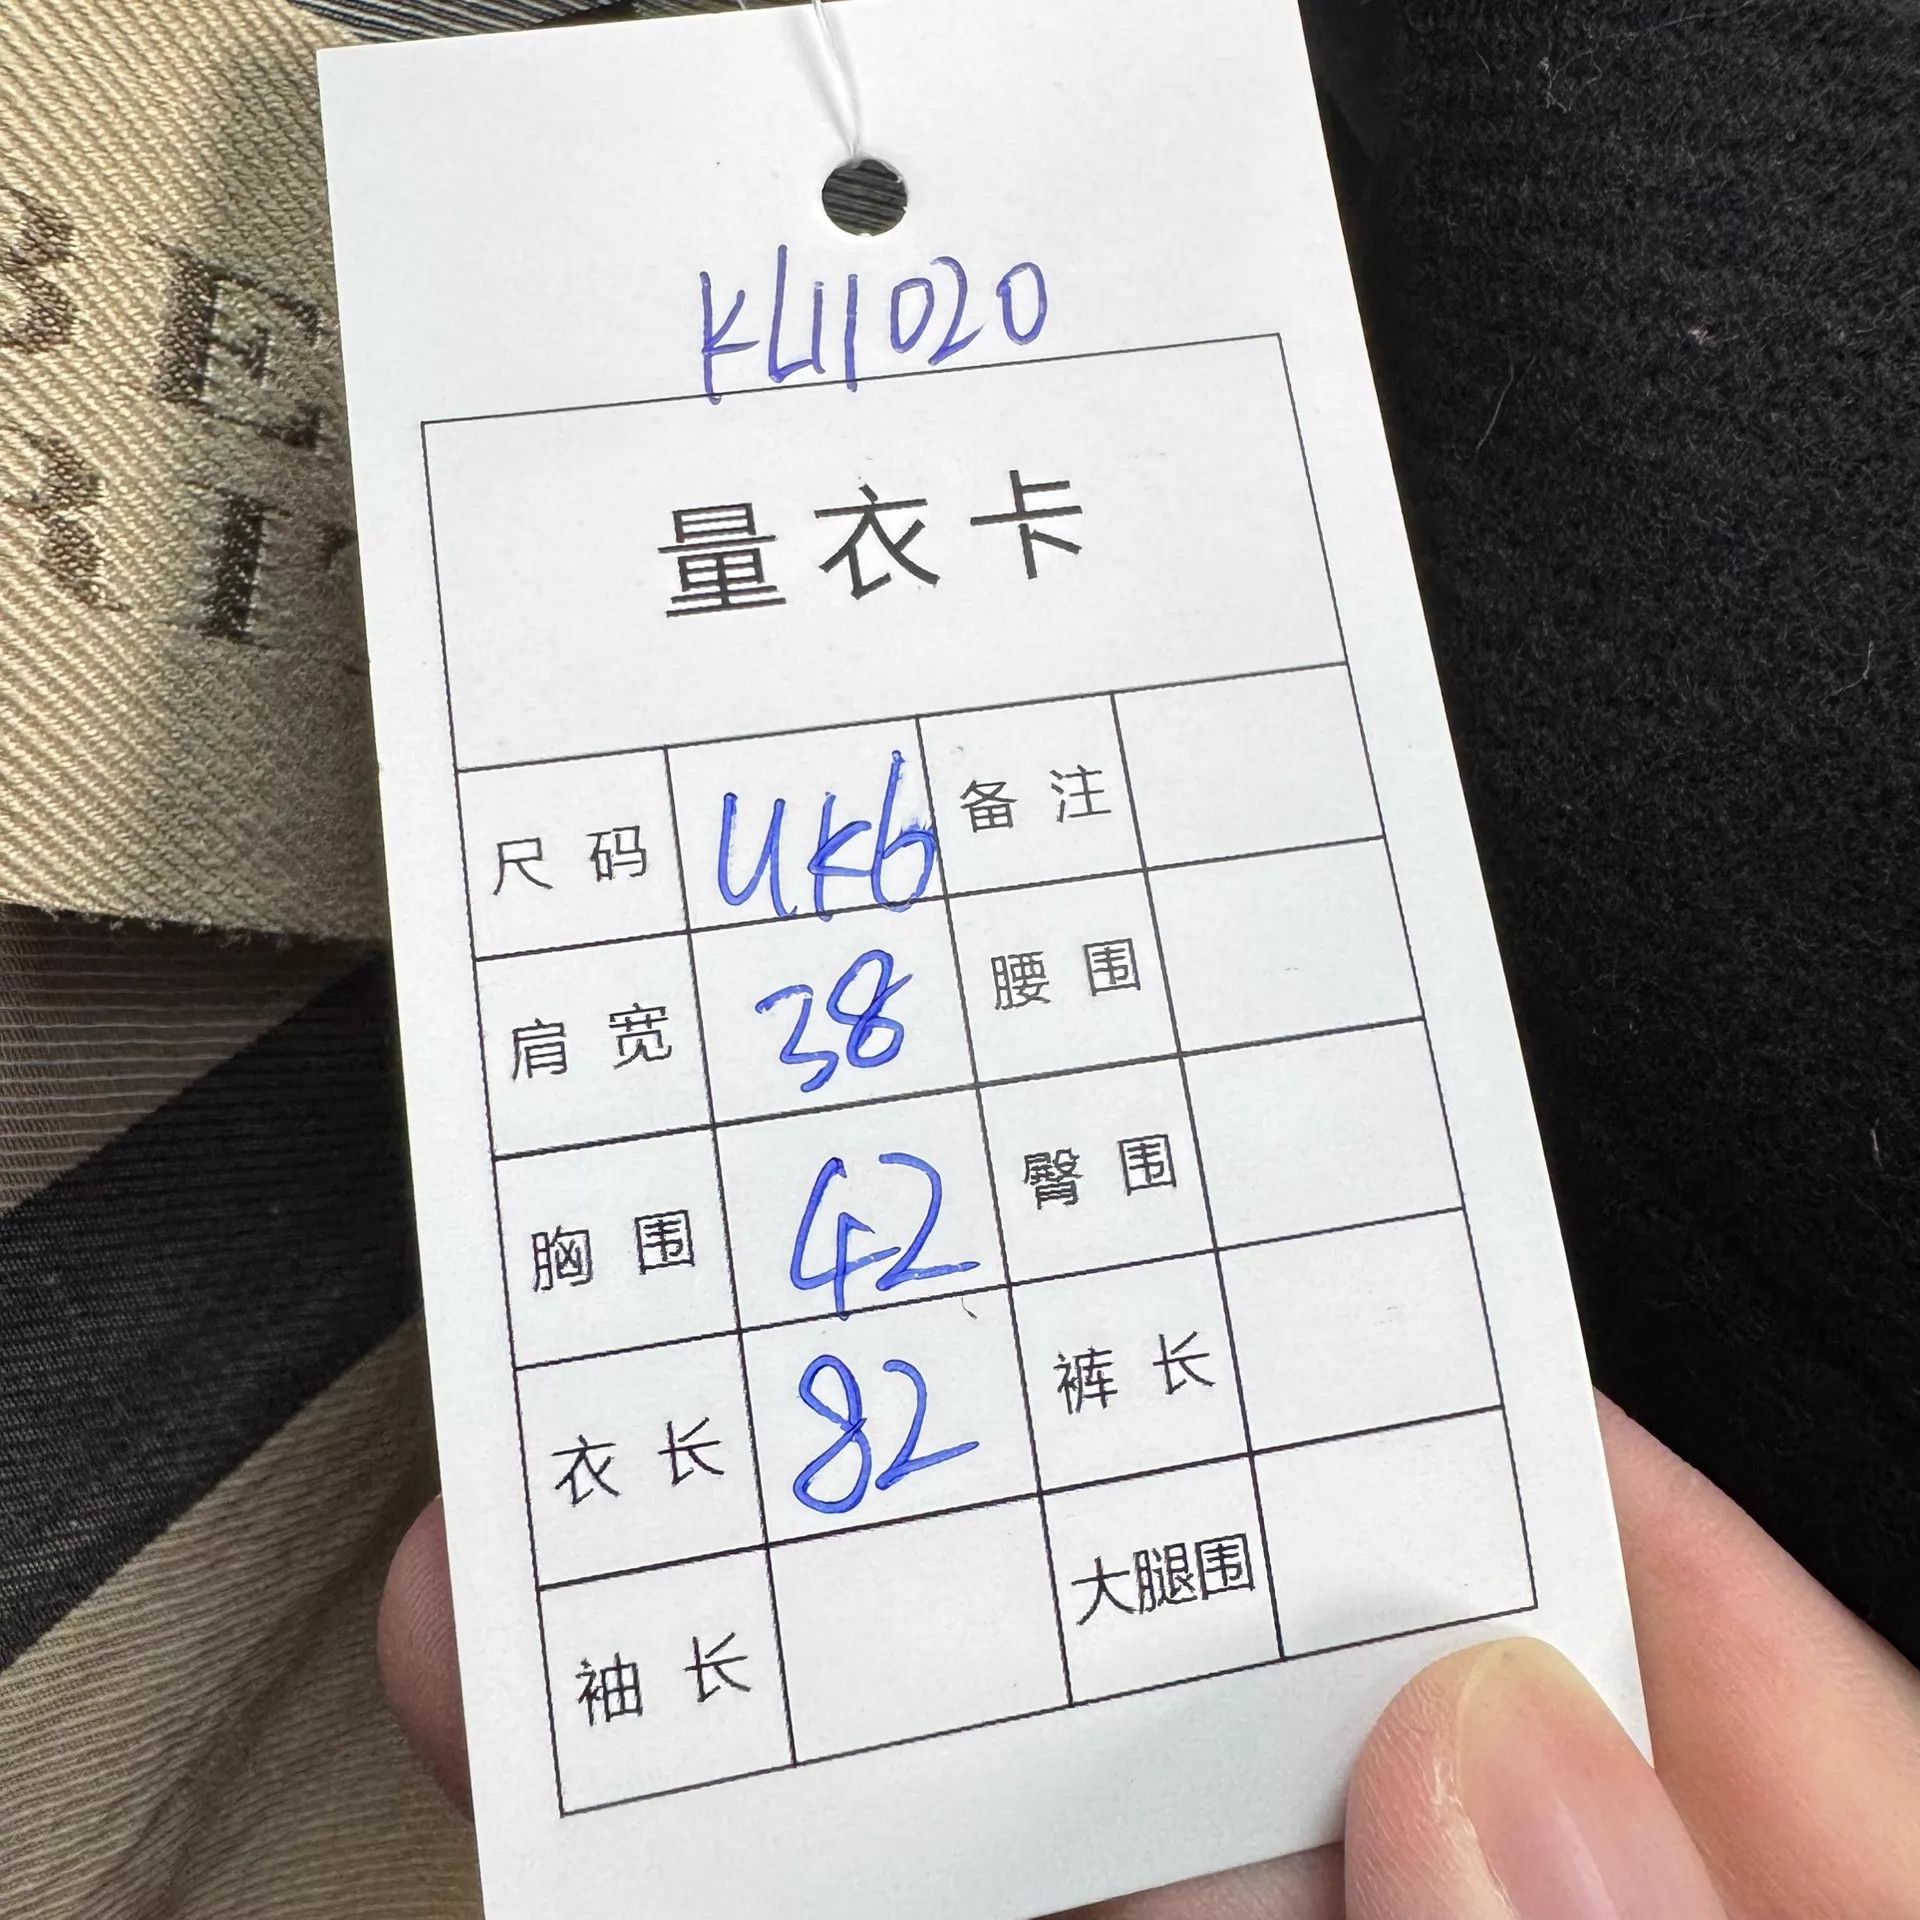 KU1020
量衣卡
尺码 UK6 备注
肩宽 38 腰围
胸围 42 臀围
衣长 82 裤长
袖长 大腿围